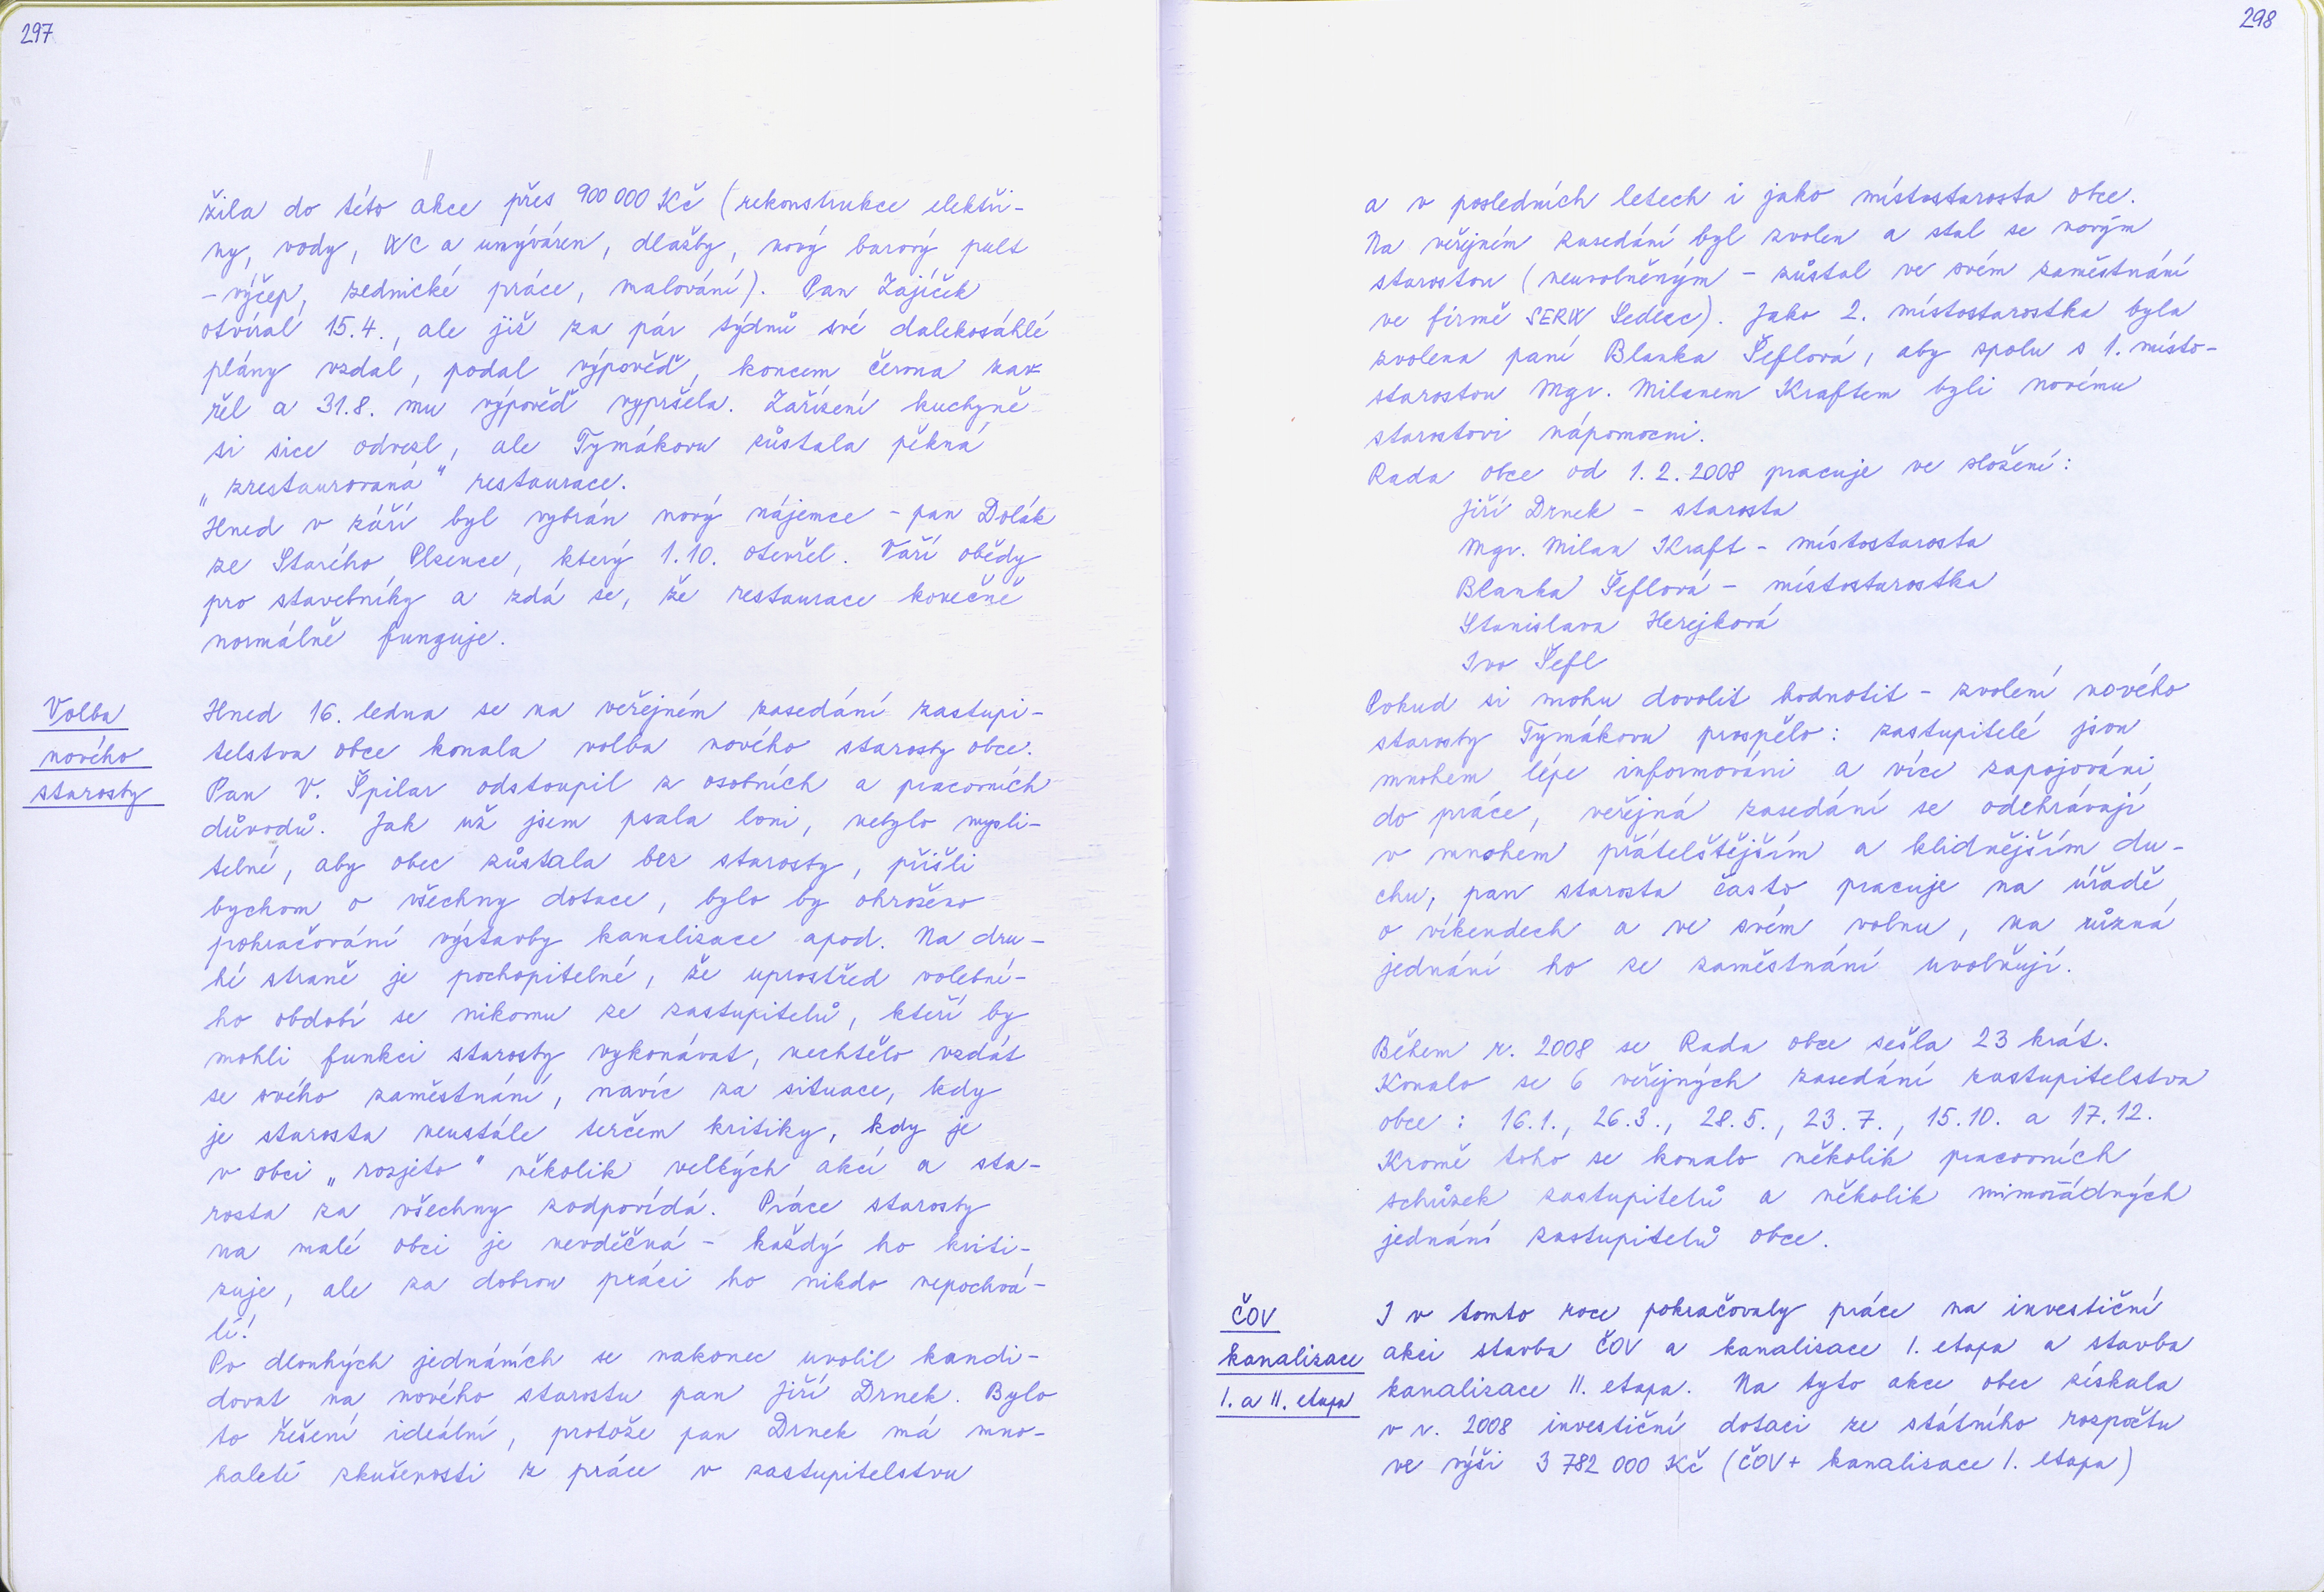 297
žila do této akce přes 900 000 Kč (rekonstrukce elektři-
ny, vody, WC a umýváren, dlažby, nový barový pult
- výčep, zednické práce, malování). Pan Zajíček
otvíral 15.4., ale již za pár týdnů své dalekosáhlé
plány vzdal, podal výpověď, koncem června zav
řel a 31.8. mu výpověď vypršela. Zařízení kuchyně
si sice odvezl, ale Tymákovu zůstala pěkná
„zrestaurovaná" restaurace.
Hned v září byl vybrán nový nájemce - pan Dolák
ze Starého Plzence, který 1.10. otevřel. Vaří obědy
pro stavebníky a zdá se, že restaurace konečně
normálně funguje.
Volba
nového
starosty
Hned 16. ledna se na veřejném zasedání zastupi-
telstva obce konala volba nového starosty obce.
Pan V. Špilar odstoupil z osobních a pracovních
důvodů. Jak už jsem psala loni, nebylo mysli-
telné, aby obec zůstala bez starosty, přišli
bychom o všechny dotace, bylo by ohroženo
pokračování výstavby kanalizace apod. Na dru-
hé straně je pochopitelné, že uprostřed volební-
ho období se nikomu ze zastupitelů, kteří by
mohli funkci starosty vykonávat, nechtělo vzdát
se svého zaměstnání, navíc za situace, kdy
je starosta neustále terčem kritiky, kdy je
v obci „rozjeto" několik velkých akcí a sta-
rosta za všechny zodpovídá. Práce starosty
na malé obci je nevděčná - každý ho kriti-
zuje, ale za dobrou práci ho nikdo nepochvá-
lí!
Po dlouhých jednáních se nakonec uvolil kandi-
dovat na nového starostu pan Jiří Drnek. Bylo
to řešení ideální, protože pan Drnek má mno-
haleté zkušenosti z práce v zastupitelstvu
298
a v posledních letech i jako místostarosta obce.
Na veřejném zasedání byl zvolen a stal se novým
starostou (neuvolněným - zůstal ve svém zaměstnání
ve firmě SERW Sedlec). Jako 2. místostarostka byla
zvolena paní Blanka Šeflová, aby spolu s 1. místo-
starostou Mgr. Milanem Kraftem byli novému
starostovi nápomocni.
Rada obce od 1.2.2008 pracuje ve složení:
Jiří Drnek - starosta
Mgr. Milan Kraft - místostarosta
Blanka Šeflová - místostarostka
Stanislava Herejková
Ivo Šefl
Pokud si mohu dovolit hodnotit - zvolení nového
starosty Tymákovu prospělo: zastupitelé jsou
mnohem lépe informováni a více zapojováni
do práce, veřejná zasedání se odehrávají
v mnohem přátelštějším a klidnějším du-
chu, pan starosta často pracuje na úřadě
o víkendech a ve svém volnu, na různá
jednání ho ze zaměstnání uvolňují.
Během r. 2008 se Rada obce sešla 23 krát.
Konalo se 6 veřejných zasedání zastupitelstva
obce: 16.1., 26.3., 28.5., 23.7., 15.10. a 17.12.
Kromě toho se konalo několik pracovních
schůzek zastupitelů a několik mimořádných
jednání zastupitelů obce.
ČOV
kanalizace
I. a II. etapa
I v tomto roce pokračovaly práce na investiční
akci stavba ČOV a kanalizace I. etapa a stavba
kanalizace II. etapa. Na tyto akce obec získala
v r. 2008 investiční dotaci ze státního rozpočtu
ve výši 3 782 000 Kč (ČOV + kanalizace I. etapa)